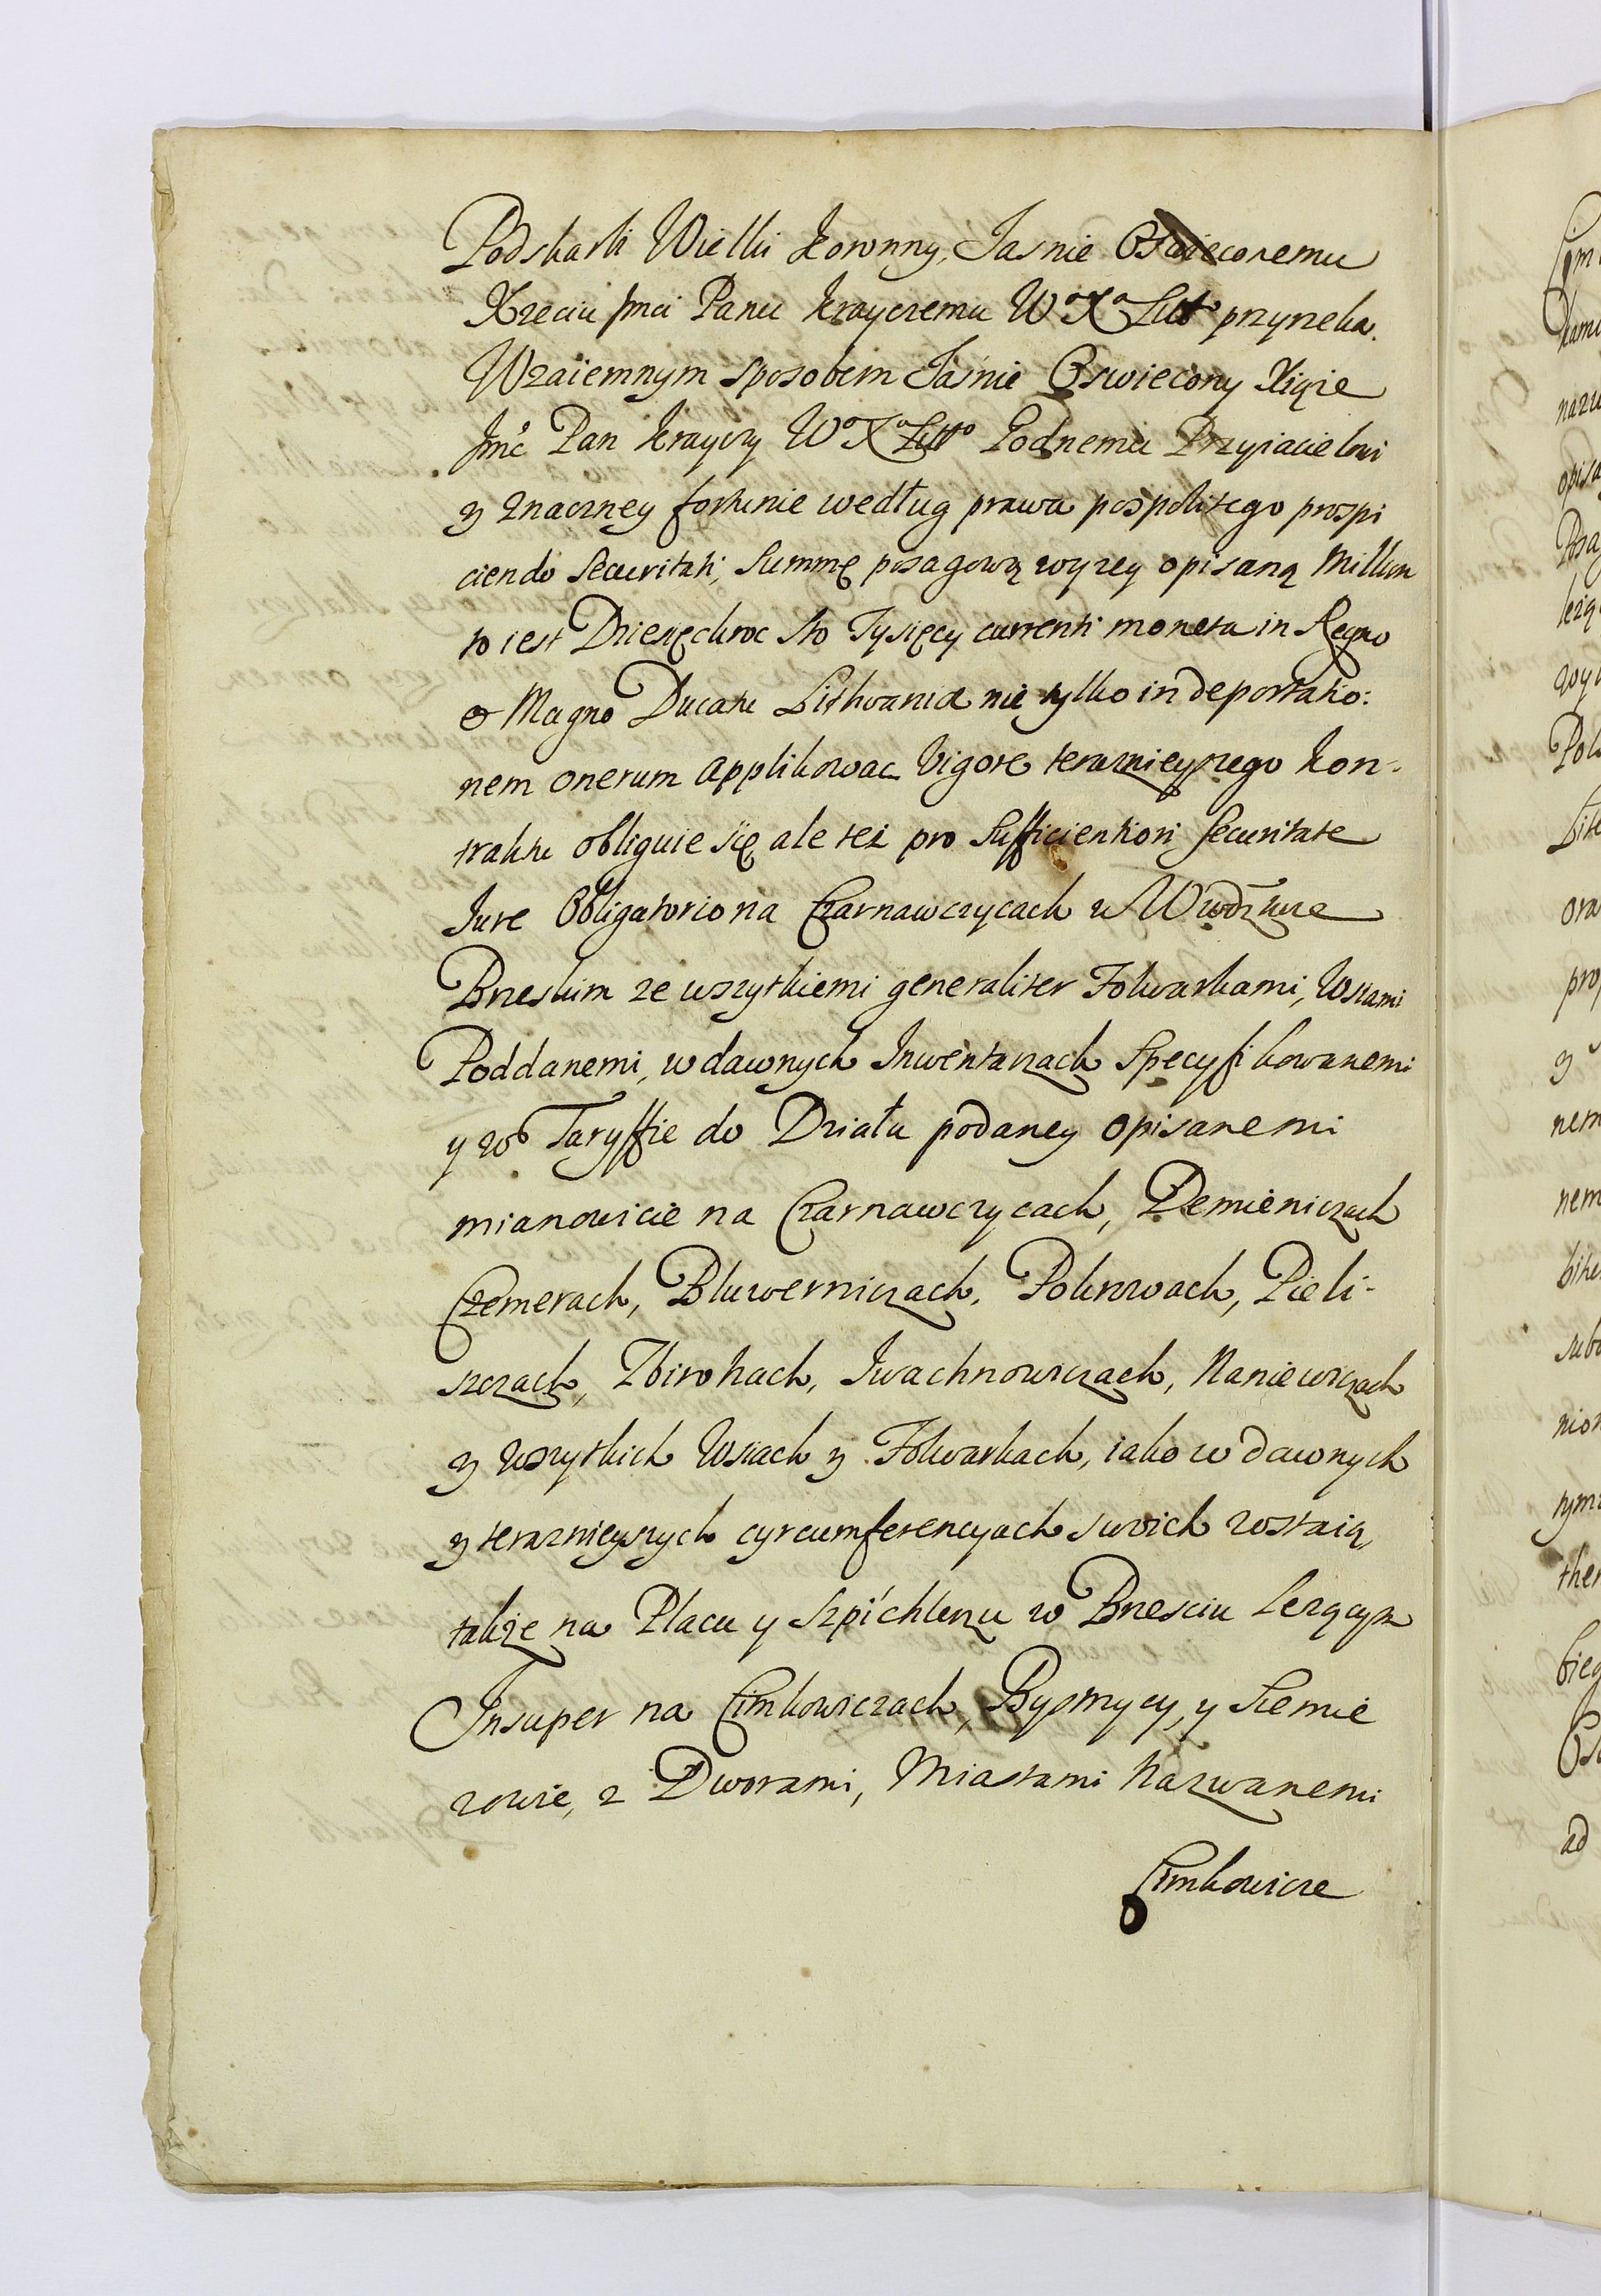 Podskarbi Wielki Koronny, Jasnie Oswieconemu
Xzeciu Jmci Panu Krayczemu Wº Xª Littº przyrzeka.
Wzaiemnym sposobem Jaśnie Oswiecony Xiąze
Jmć Pan Krayczy Wº Xª Littº Godnemu Przyiacielowi
y znaczney fortunie według prawa pospolitego prospi
ciendo Securitati, Summę posagową wyzey opisaną Million
to iest Dziesięckroc sto Tysięcy currenti moneta in Regno
et Magno Ducatu Lithvaniæ nie tylko in deportatio:
nem onerum applikowac vigore teraznieyszego Kon-
traktu obliguie się ale też pro sufficientiori securitate
Jure Obligatorio na Czarnawczycach w Wwdztwie
Brzeskim ze wszytkiemi generaliter Folwarkami, Wsiami
Poddanemi, w dawnych Inwentarzach Specyfikowanemi
y w Taryffie do Działu podaney opisanemi
mianowicie na Czarnawczycach, Demieniczach
Czemerach, Bluwerniczach, Pokrowach, Pieli-
szczach, Zbirohach, Iwachnowiczach, Naniewiczach
y wszytkich Wsiach y Folwarkach, iako w dawnych
y teraznieyszych cyrcumferencyach swoich zostaią,
także na Placu y Szpichlerzu w Brzesciu lezącym
Insuper na Cimkowiczach, Bystrzycy, y Kiemie
zowie, z Dworami, Miastami Nazwanemi
Cimkowicze
Cim
nazw
opisa
Pols
Lite
ora
pro
y
nem
nem
ad